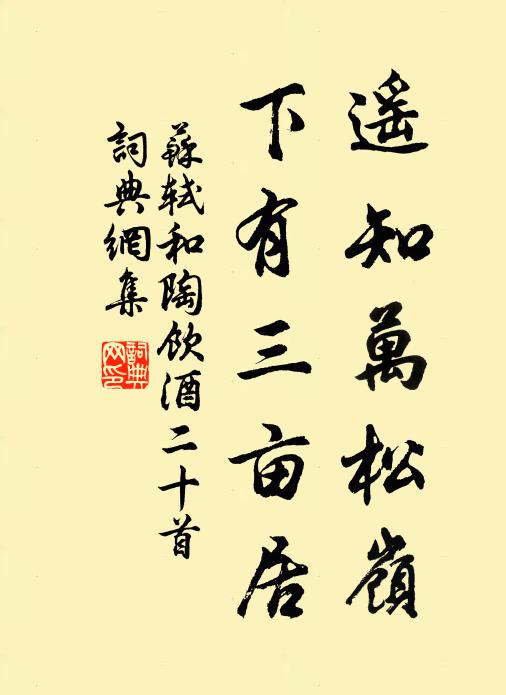 遥知萬松嶺
下有三亩居
蘇軾和陶飲酒二十首
詞典網集
詞典網印